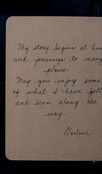 My story begins at home
and journeys to many
places.
May you enjoy some
of what I have felt
and seen along the
way.